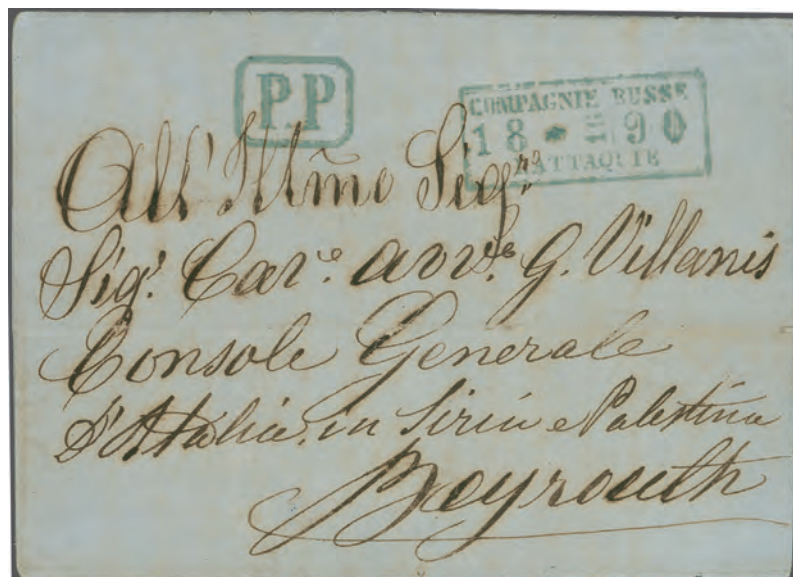 P.P
COMPAGNIE RUSSE
18 90
LATTAQUIE
All' Illmo Sigr
Sigr Cavre avvto G. Villanis
Console Generale
D'Italia in Siria e Palestina
Beyrouth